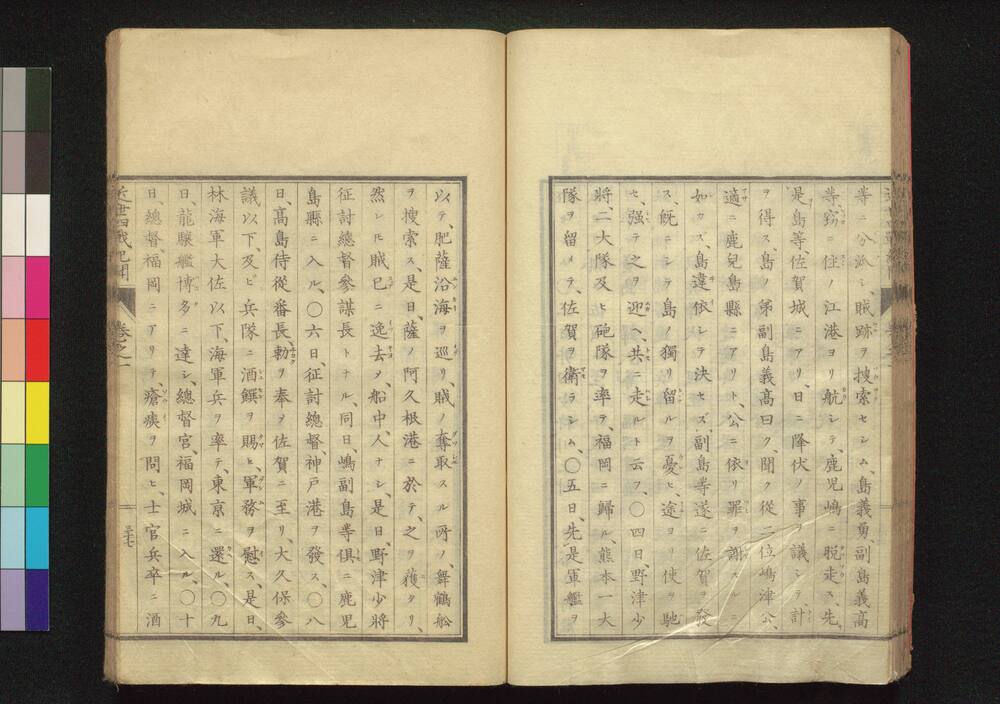 等ニ分派シ、賊跡ヲ搜索セシム、島義勇、副島義高
等、竊ニ住ノ江港ヨリ航シテ、鹿児嶋ニ脱走ス、先
是、島等佐賀城ニアリ、日ニ降伏ノ事ヲ議シテ、計
ヲ得ス、島ノ弟副島義高曰ク、聞ク從二位嶋津公、
適ニ鹿兒島縣ニアリト、公ニ依リ罪ヲ謝スルニ
如カズ、島違依シテ決セズ、副島等遂ニ佐賀ヲ發
ス、既ニシテ島ノ獨リ留ルヲ憂ヒ、途ヨリ使ヲ馳
セ、强テ之ヲ迎ヘ、共ニ走ルト云フ、〇四日、野津少
將、二大隊及ヒ砲隊ヲ率テ、福岡ニ歸ル、熊本一大
隊ヲ留メテ、佐賀ヲ衞ラシム、〇五日、先是軍艦ヲ
以テ、肥薩沿海ヲ巡リ、賊ノ奪取スル所ノ、舞鶴舩
ヲ搜索ス、是日、薩ノ阿久根港ニ於テ、之ヲ獲タリ、
然シ𪜈賊已ニ逃去ノ、船中人ナシ、是日、野津少將
征討總督參謀長トナル、同日、嶋副島等俱ニ鹿児
島縣ニ入ル、〇六日、征討總督、神戸港ヲ發ス、〇八
日、髙島侍從番長、勅ヲ奉シ佐賀ニ至リ、大久保參
議以下、及ビ兵隊ニ酒饌ヲ賜ヒ、軍務ヲ慰ス、是日、
林海軍大佐以下、海軍兵ヲ率テ、東京ニ還ル、〇九
日、龍驤艦博多ニ達シ、總督宮、福岡城ニ入ル、〇十
日、總督、福岡ニアリテ、瘡痍ヲ問ヒ、士官兵卒ニ酒
卷之一
三十七